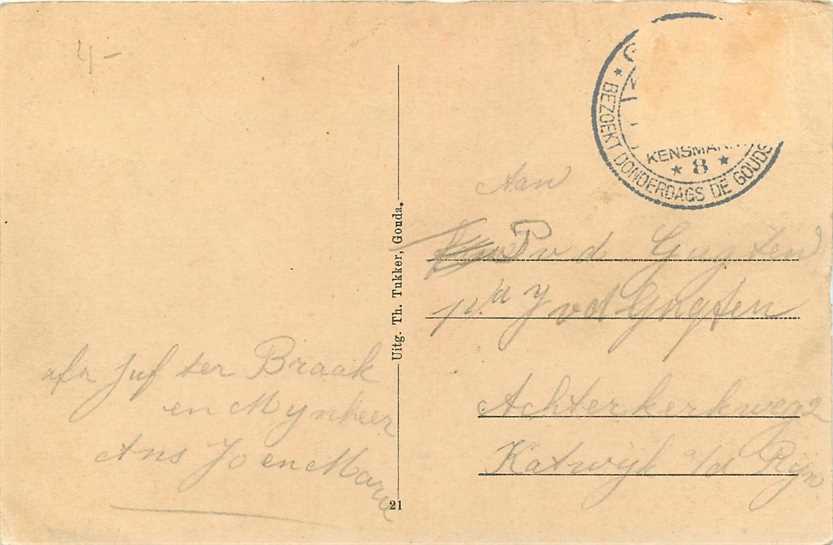 4-
BEZOEKT DONDERDAGS DE GOUDS
KENSMA
* 8 *
Aan
P v d Gugten
p/a J vd Gugten
Achterkerkweg 2
Katwijk a/d Ryn
afz Juf ter Braak
en Mynheer
Ans Jo en Marie
Uitg. Th. Tukker, Gouda.
21